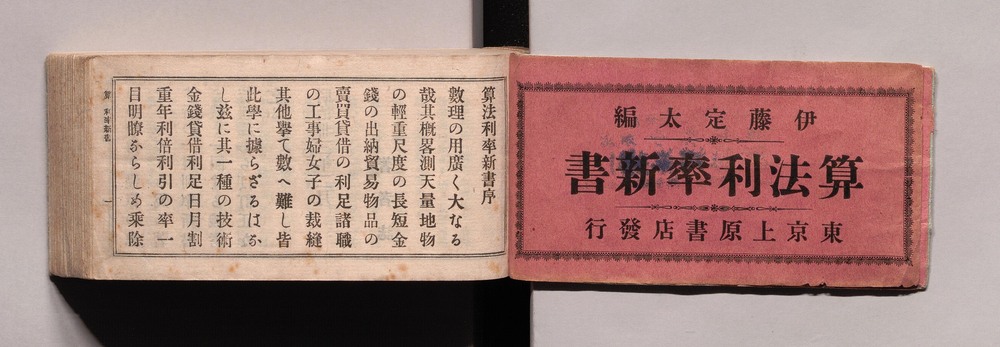 伊藤定太編
算法利率新書
東京上原書店發行
算法利率新書序
數理の用廣く大なる
哉其概畧測天量地物
の輕重尺度の長短金
錢の出納貿易物品の
賣買貸借の利足諸職
の工事婦女子の裁縫
其他擧て數へ難し皆
此學に據らざるはな
し玆に其一種の技術
金錢貸借利足日月割
重年利倍利引の率一
目明瞭ならしめ乘除
一